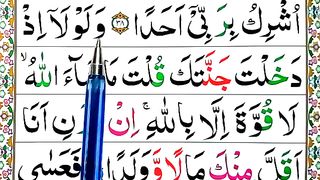 اُشْرِكْ بِرَبِّىْۤ اَحَدًا ﴿۳۸﴾ وَلَوْلَاۤ اِذْ
دَخَلْتَ جَنَّتَكَ قُلْتَ مَا شَآءَ اللّٰهُ ۙ
لَا قُوَّةَ اِلَّا بِاللّٰهِ ۚ اِنْ تَرَنِ اَنَا
اَقَلَّ مِنْكَ مَالًا وَّوَلَدًا ﴿۳۹﴾ فَعَسٰى